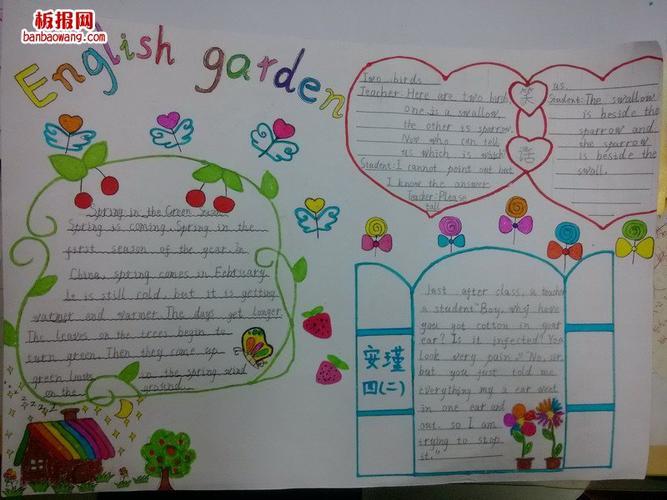 板报网
banbaowang.com
English garden
Spring in the Green
Spring is coming. Spring in the
first season of the year. In
China, spring comes in February
It is still cold, but it is getting
warmer and warmer. The days get longer.
The leaves on the trees begin to
turn green. Then they come up
green leaves in the spring wind
on the ground.
Two birds
Teacher: Here are two birds,
one is a swallow,
the other is sparrow.
Now who can tell
us which is which
Student: I cannot point out but
I know the answer
Teacher: Please
tell
笑
话
us.
Student: The swallow
is beside the
sparrow and
the sparrow
is beside the
swall.
安瑾
四(二)
Just after class, a teacher
a student "Boy, why have
you got cotton in your
ear? Is it infected? You
look very pain." "No, sir,
but you just told me
everything my a ear went
in one ear and
out, so I am
trying to stop
it."